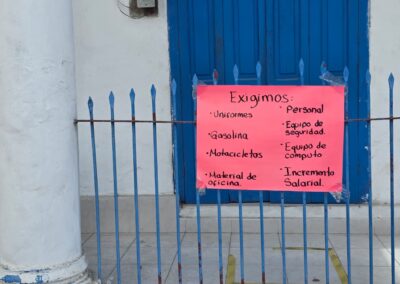 Exigimos:
·Uniformes
·Gasolina
·Motocicletas
·Material de
oficina.
·Personal
·Equipo de
seguridad.
·Equipo de
computo
·Incremento
Salarial.